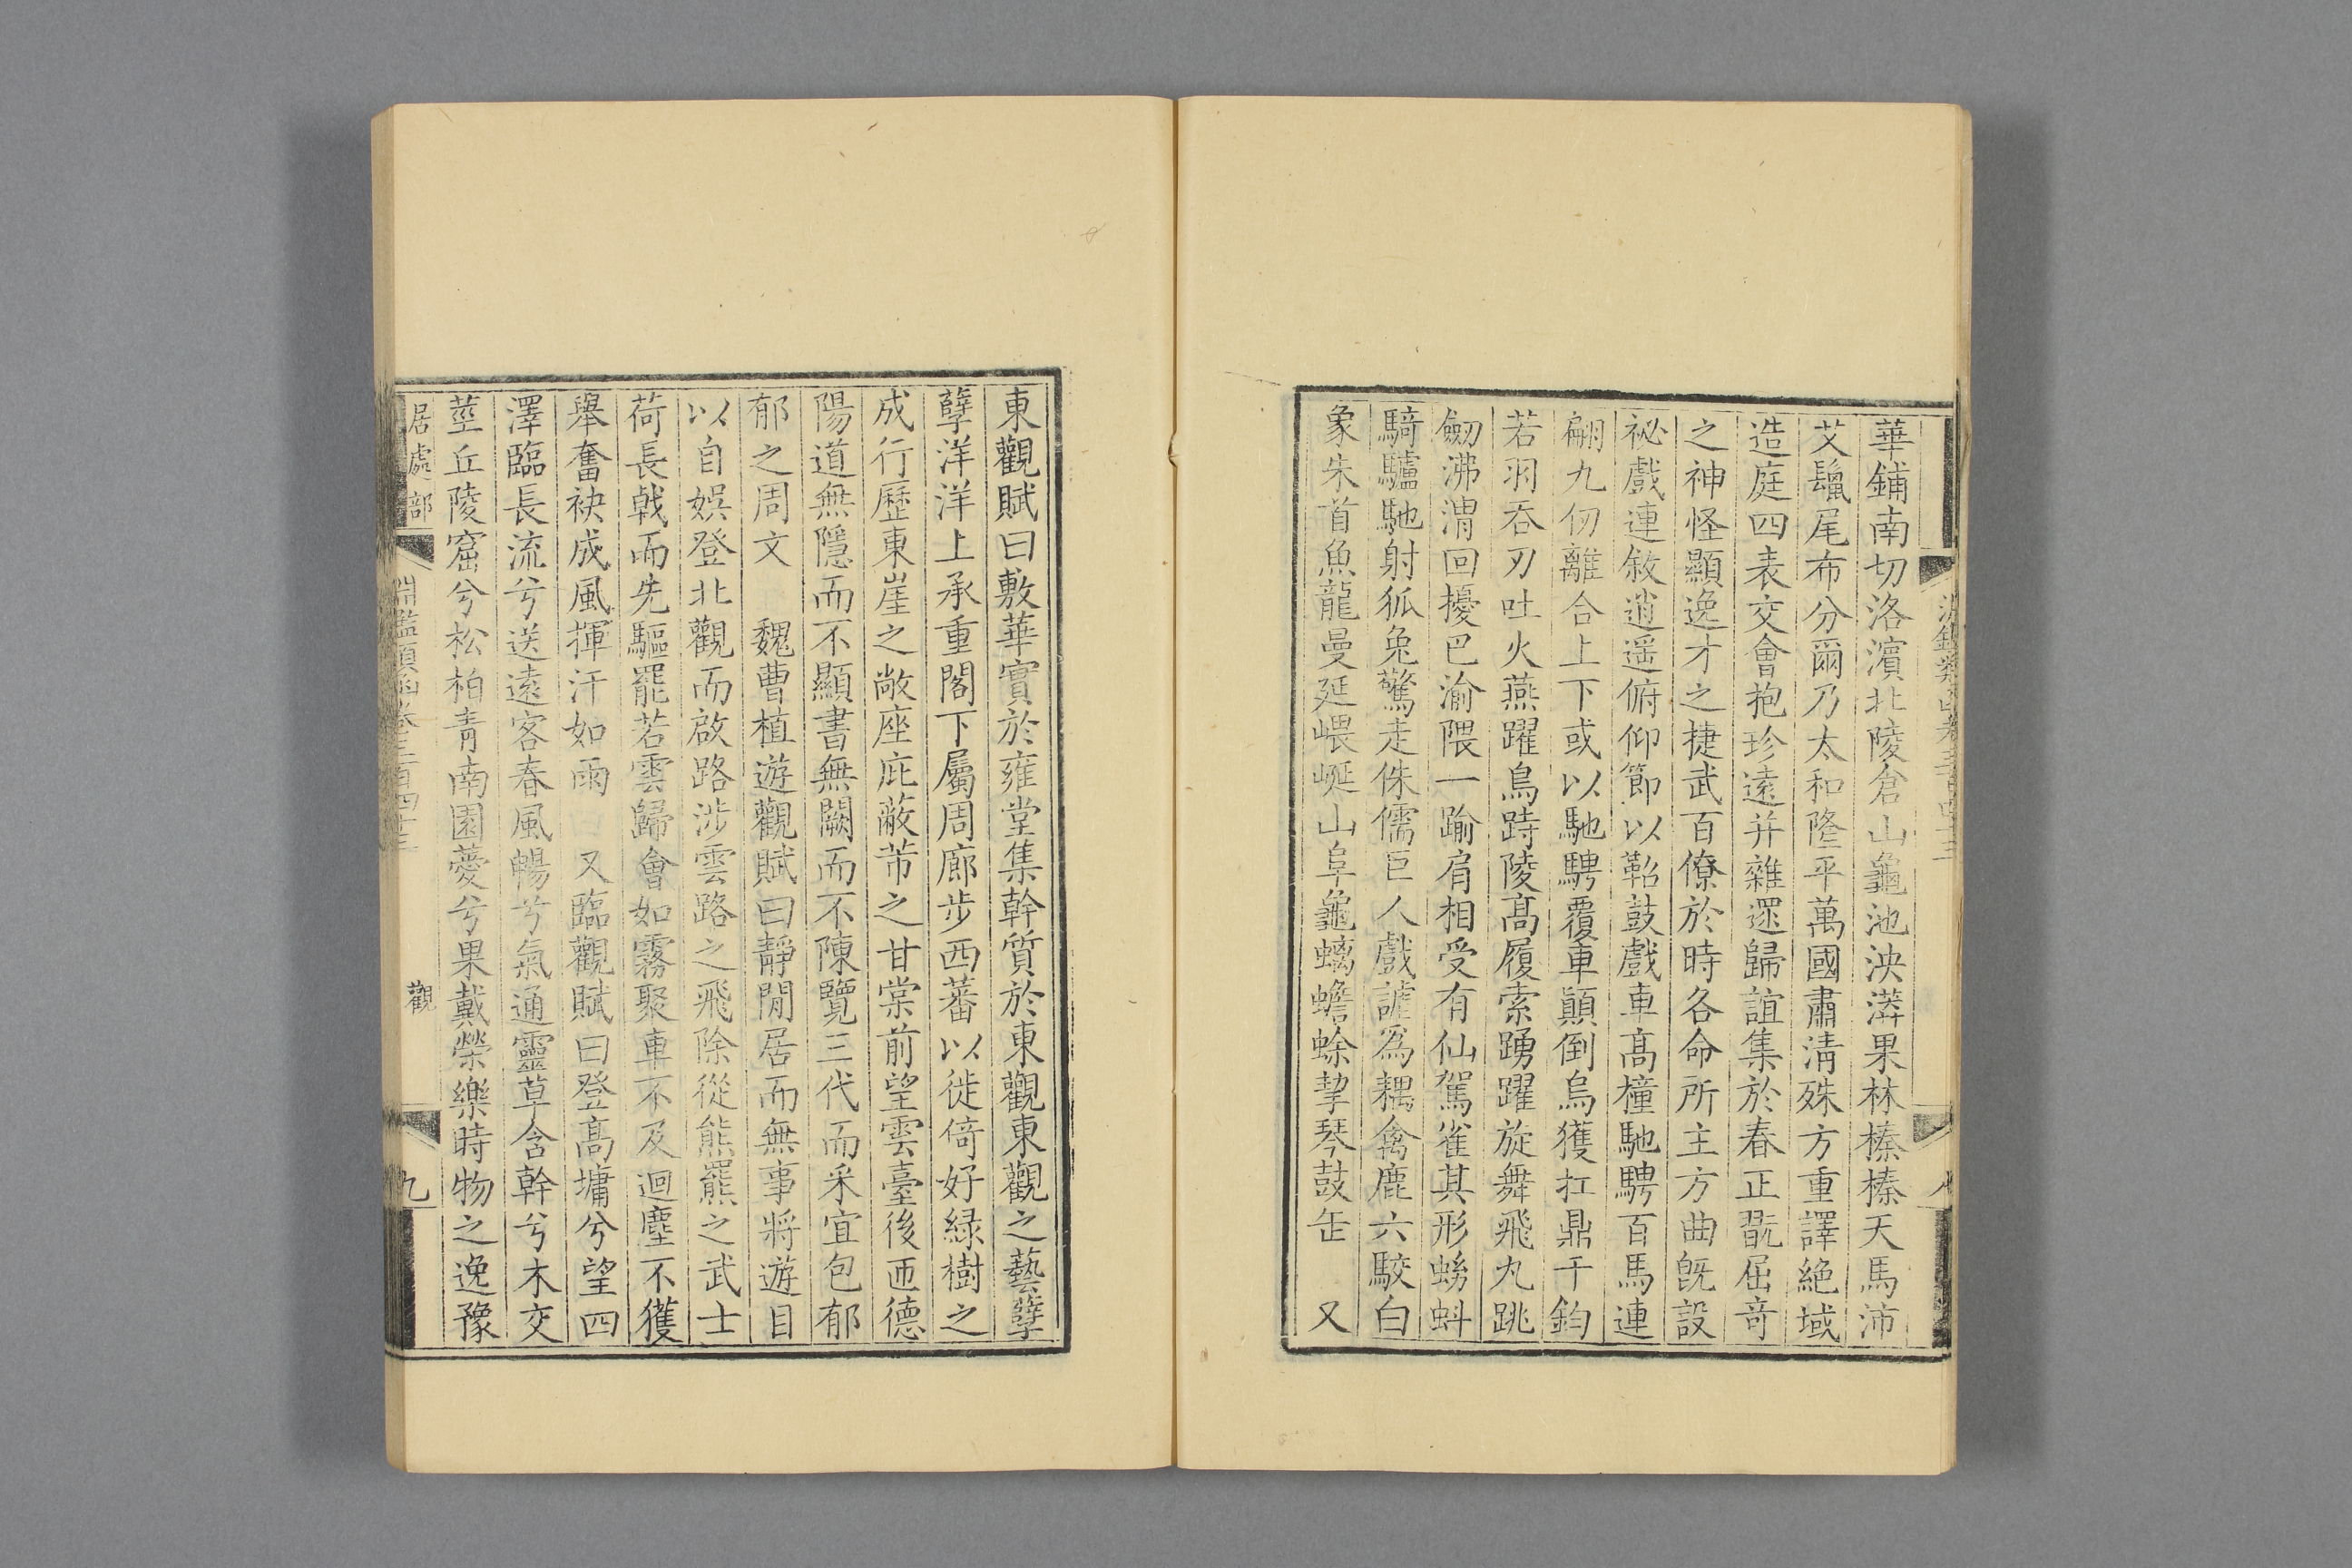 華鋪南切洛濱北陵倉山龜池泱漭果林榛榛天馬沛
艾鬣尾布分爾乃太和隆平萬國肅清殊方重譯絕域
造庭四表交會抱珍遠并雜遝歸誼集於春正翫屈竒
之神怪顯逸才之捷武百僚於時各命所主方曲旣設
祕戲連敘逍遥俯仰節以鞀鼓戲車髙橦馳騁百馬連
翩九仞離合上下或以馳騁覆車顛倒烏獲扛鼎千鈞
若羽吞刃吐火燕躍鳥跱陵髙履索踴躍旋舞飛丸跳
劒沸渭回擾巴渝隈一踰肩相受有仙駕雀其形蚴蚪
騎驢馳射狐兔驚走侏儒巨人戲謔爲耦禽鹿六駮白
象朱首魚龍曼延嵔㟴山阜龜螭蟾蜍挈琴鼓缶　又
東觀賦曰敷華實於雍堂集幹質於東觀東觀之藝孽
孽洋洋上承重閣下屬周廊步西蕃以徙倚好緑樹之
成行歷東崖之敞座庇蔽芾之甘棠前望雲臺後匝德
陽道無隱而不顯書無闕而不陳覽三代而采宜包郁
郁之周文　魏曹植遊觀賦曰靜閒居而無事將遊目
以自娱登北觀而啟路涉雲路之飛除從熊羆之武士
荷長戟而先驅罷若雲歸會如霧聚車不及迴塵不獲
舉奮袂成風揮汗如雨　又臨觀賦曰登髙墉兮望四
澤臨長流兮送遠客春風暢兮氣通靈草含幹兮木交
莖丘陵窟兮松柏青南園薆兮果戴榮樂時物之逸豫
居處部
淵鑑類函卷三百四十三
觀
九